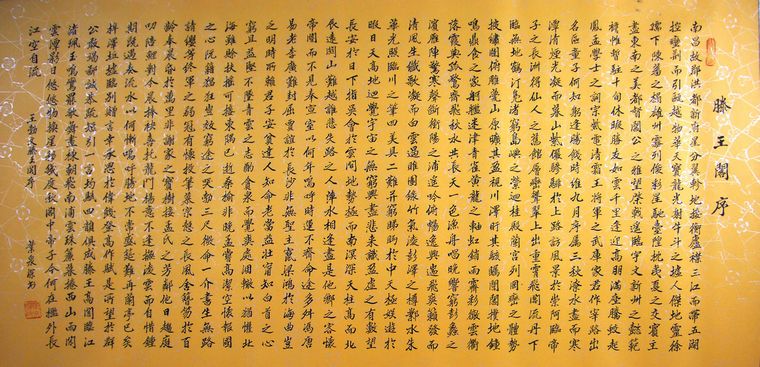 滕王閣序
南昌故郡洪都新府星分翼軫地接衡廬襟三江而帶五湖
控蠻荊而引甌越物華天寶龍光射牛斗之墟人傑地靈徐
孺下陳蕃之榻雄州霧列俊彩星馳臺隍枕夷夏之交賓主
盡東南之美都督閻公之雅望棨戟遙臨宇文新州之懿範
襜帷暫駐十旬休暇勝友如雲千里逢迎高朋滿座騰蛟起
鳳孟學士之詞宗紫電清霜王將軍之武庫家君作宰路出
名區童子何知躬逢勝餞時維九月序屬三秋潦水盡而寒
潭清煙光凝而暮山紫儼驂騑於上路訪風景於崇阿臨帝
子之長洲得仙人之舊館層巒聳翠上出重霄飛閣流丹下
臨無地鶴汀鳧渚窮島嶼之縈迴桂殿蘭宮列岡巒之體勢
披繡闥俯雕甍山原曠其盈視川澤盱其駭矚閭閻撲地鐘
鳴鼎食之家舸艦迷津青雀黃龍之軸虹銷雨霽彩徹雲衢
落霞與孤鶩齊飛秋水共長天一色漁舟唱晚響窮彭蠡之
濱雁陣驚寒聲斷衡陽之浦遙吟俯暢逸興遄飛爽籟發而
清風生纖歌凝而白雲遏睢園綠竹氣凌彭澤之樽鄴水朱
華光照臨川之筆四美具二難并窮睇眄於中天極娛遊於
暇日天高地迥覺宇宙之無窮興盡悲來識盈虛之有數望
長安於日下指吳會於雲間地勢極而南溟深天柱高而北
辰遠關山難越誰悲失路之人萍水相逢盡是他鄉之客懷
帝閽而不見奉宣室以何年嗚呼時運不齊命途多舛馮唐
易老李廣難封屈賈誼於長沙非無聖主竄梁鴻於海曲豈
乏明時所賴君子安貧達人知命老當益壯寧知白首之心
窮且益堅不墜青雲之志酌貪泉而覺爽處涸轍以猶懽北
海雖賒扶搖可接東隅已逝桑榆非晚孟嘗高潔空懷報國
之心阮籍猖狂豈效窮途之哭勃三尺微命一介書生無路
請纓等終軍之弱冠有懷投筆慕宗慤之長風舍簪笏於百
齡奉晨昏於萬里非謝家之寶樹接孟氏之芳鄰他日趨庭
叨陪鯉對今晨捧袂喜托龍門楊意不逢撫凌雲而自惜鍾
期既遇奏流水以何慚嗚呼勝地不常盛筵難再蘭亭已矣
梓澤坵墟臨別贈言幸承恩於偉餞登高作賦是所望於群
公敢竭鄙誠恭疏短引一言均賦四韻俱成滕王高閣臨江
渚佩玉鳴鸞罷歌舞畫棟朝飛南浦雲珠簾暮捲西山雨閑
雲潭影日悠悠物換星移幾度秋閣中帝子今何在檻外長
江空自流
王勃文滕王閣序